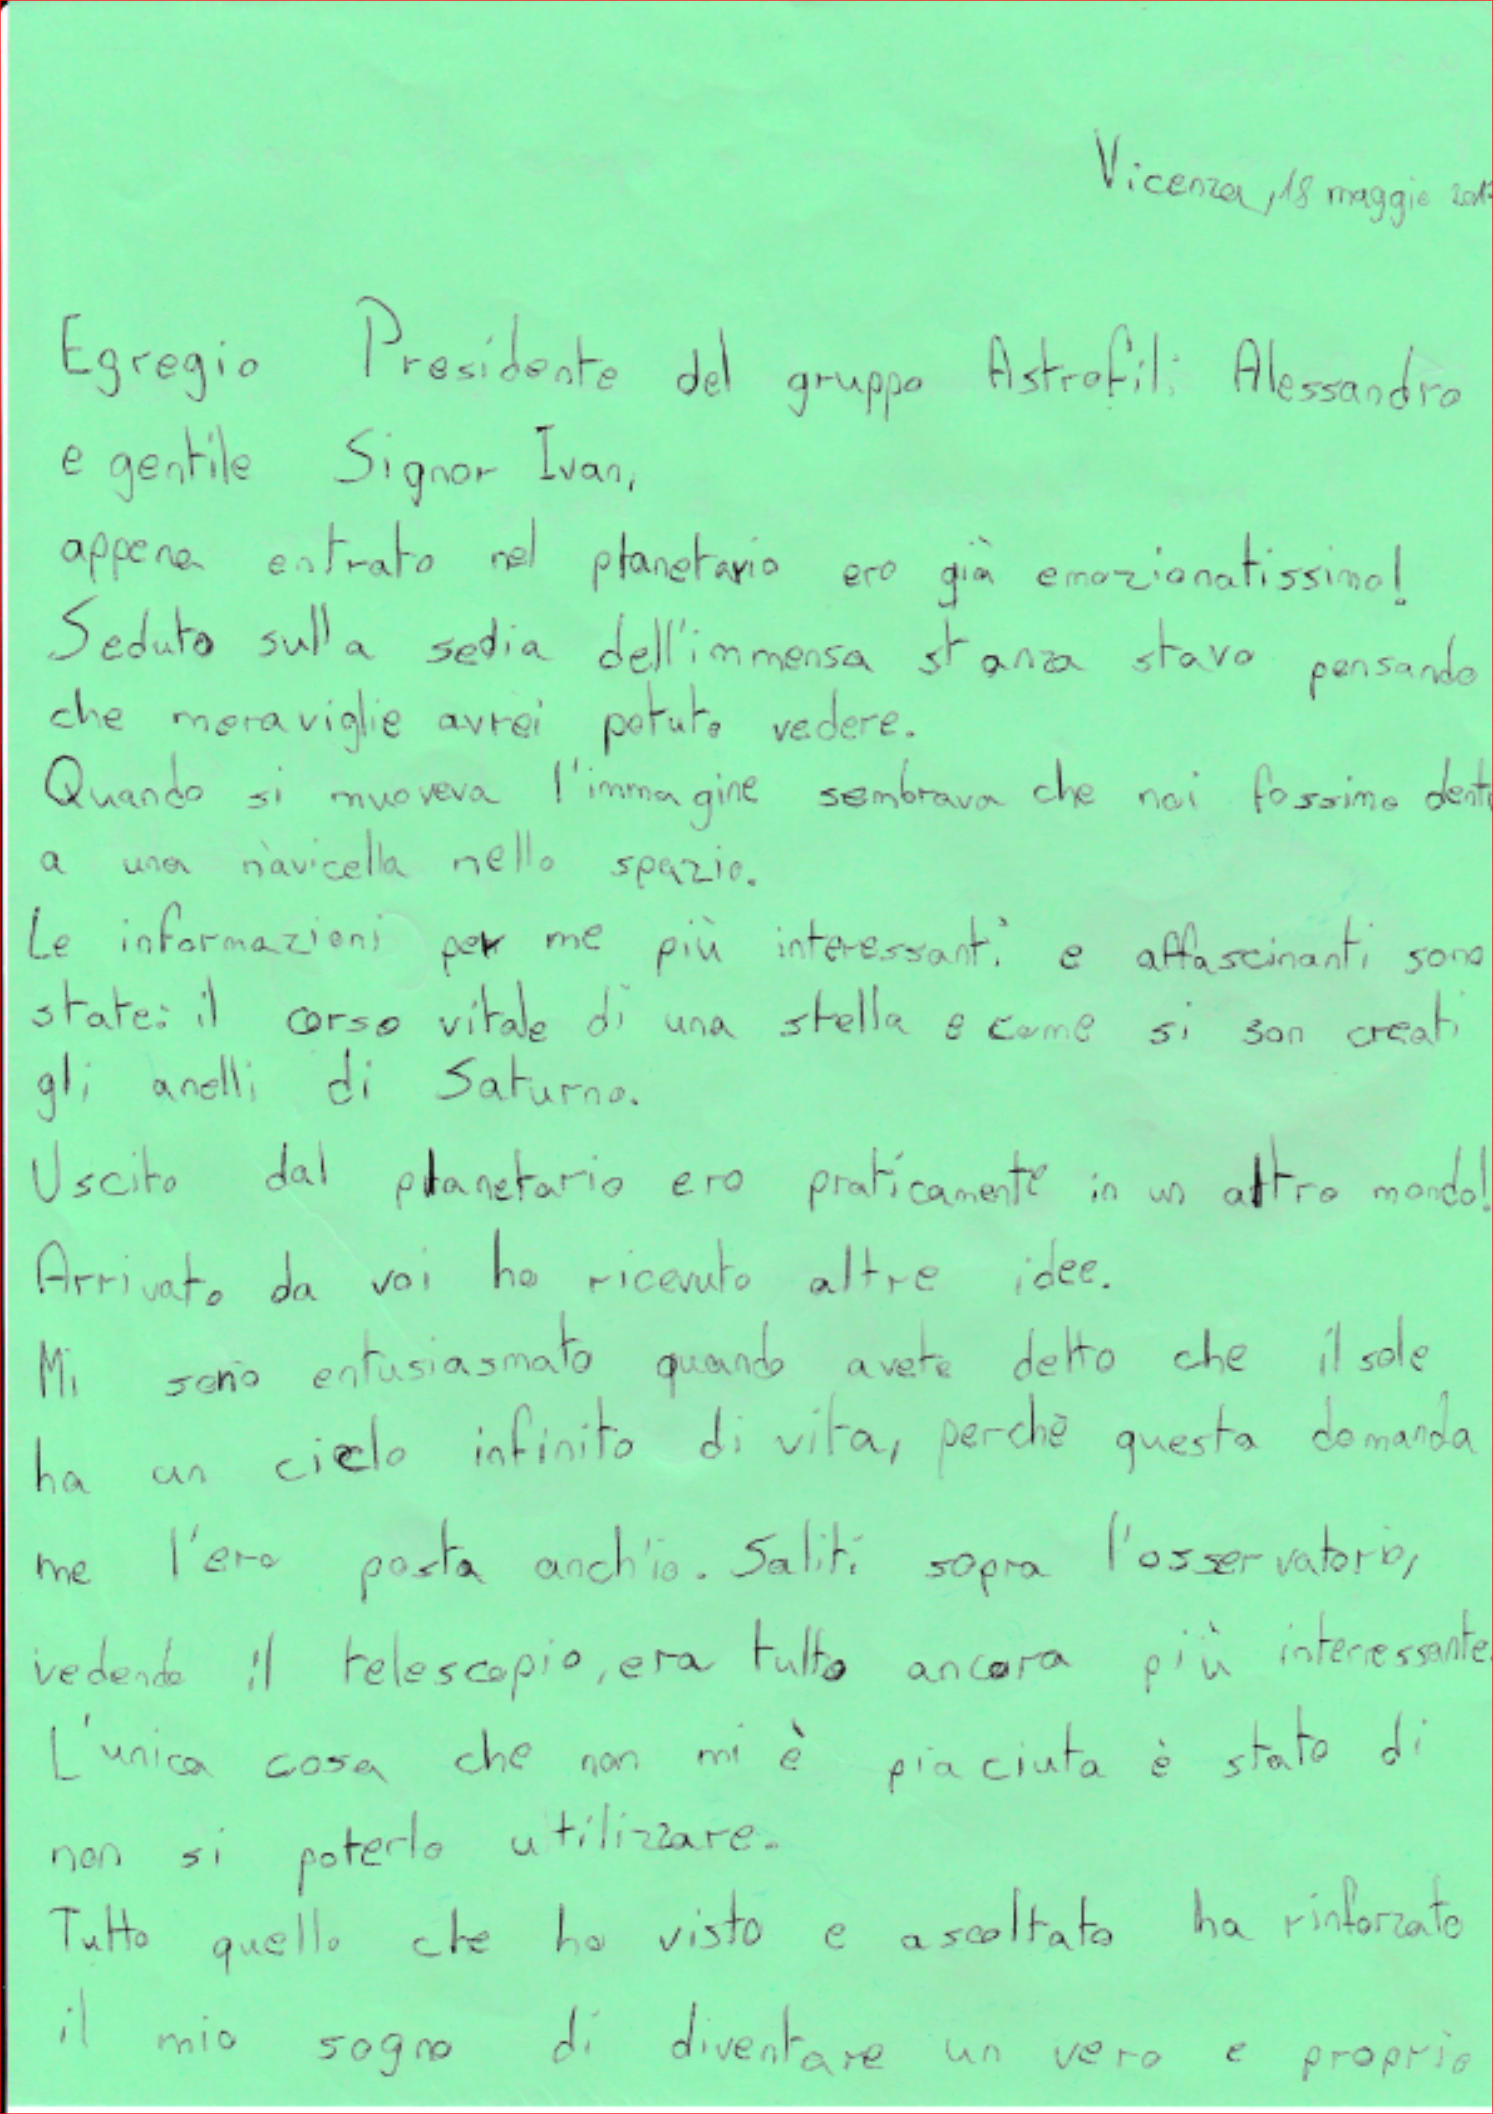 Vicenza, 18 maggio
Egregio Presidente del gruppo Astrofili Alessandro
e gentile Signor Ivan,
appena entrato nel planetario ero già emozionatissimo!
Seduto sulla sedia dell'immensa stanza stavo pensando
che meraviglie avrei potuto vedere.
Quando si muoveva l'immagine sembrava che noi fossimo dentro
a una navicella nello spazio.
Le informazioni per me più interessanti e affascinanti sono
state: il corso vitale di una stella e come si son creati
gli anelli di Saturno.
Uscito dal planetario ero praticamente in un altro mondo!
Arrivato da voi ho ricevuto altre idee.
Mi sono entusiasmato quando avete detto che il sole
ha un ciclo infinito di vita, perchè questa domanda
me l'ero posta anch'io. Saliti sopra l'osservatorio,
vedendo il telescopio, era tutto ancora più interressante.
L'unica cosa che non mi è piaciuta è stato di
non si poterlo utilizzare.
Tutto quello che ho visto e ascoltato ha rinforzato
il mio sogno di diventare un vero e proprio